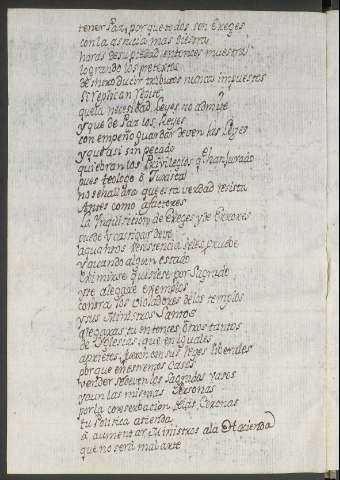 tener Paz, porque todos son Exeges
con la astucia mas diestra
horas de su piedad entonces muestra
logrando los pretextos
de introducir tributos nunca impuestos
Si replican repite
que la necesidad Leyes no admite
y que de Paz los Reyes
con empeño guardar deven las Leyes
y que asi sin pecado
quiebran los Privilegios q̃ han jurado
pues teologo ô Jurista
no se hallara que esta verdad resista
Antes como a factores
la Inquisicion de Exeges y de Errores
puede y castigar deve
a quantos resistencia
y quando algun estado
eximirse quisiese por Sagrado
yo te alegare exemplos
contra los violadores de los templos
y sus Ministros Santos
alegaras tu entonces otros tantos
de Yglesias, que en iguales
aprietos, fueron con sus reyes liberales
porque en estremos casos
vender se deven los Sagrados vasos
y aun las mismas Personas
por la conservacion de las Coronas
tu Politica atienda
â aumentar Ministros a la Hacienda
que no será mal arte